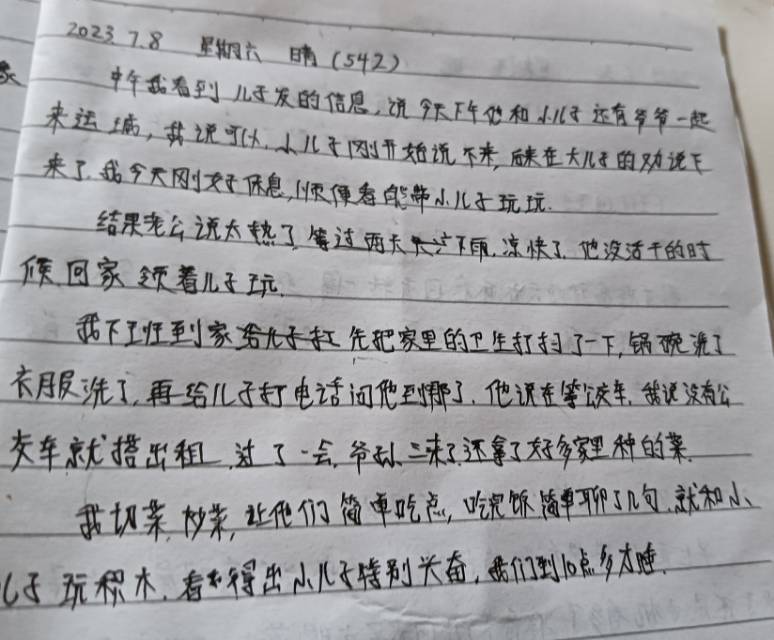 2023 7.8 星期六 晴(542)
中午我看到儿子发的信息,说今天下午他和小儿子还有爷爷一起
来运城,我说可以,小儿子刚开始说不来,后来在大儿子的劝说下
来了,我今天刚好休息,顺便着能带小儿子玩玩.
结果老公说太热了,等过两天下雨,凉快了,他没活干的时
候,回家领着儿子玩.
我下班到家先把家里的卫生打扫了一下,锅碗洗了
衣服洗了,再给儿子打电话问他到哪了,他说在等公交车,我说没有公
交车就搭出租,过了一会,爷孙三来了,还拿了好多家里种的菜.
我切菜,炒菜,让他们简单吃点,吃完饭简单聊了几句,就和小
儿子玩积木,看得出小儿子特别兴奋,我们到10点多才睡.